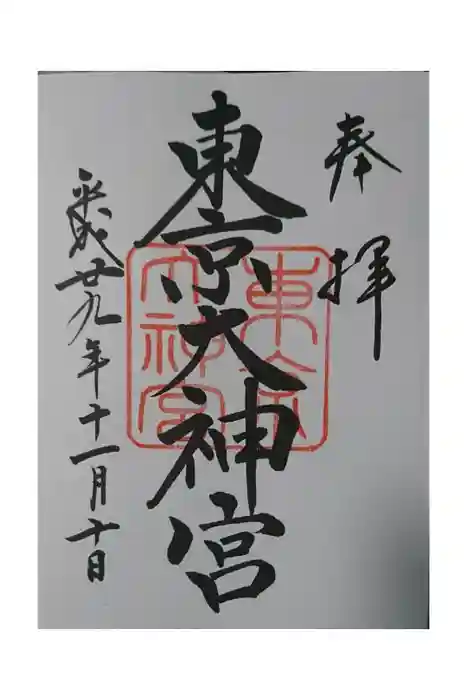 奉拝
東京大神宮
東京大神宮
平成廿九年十一月十日